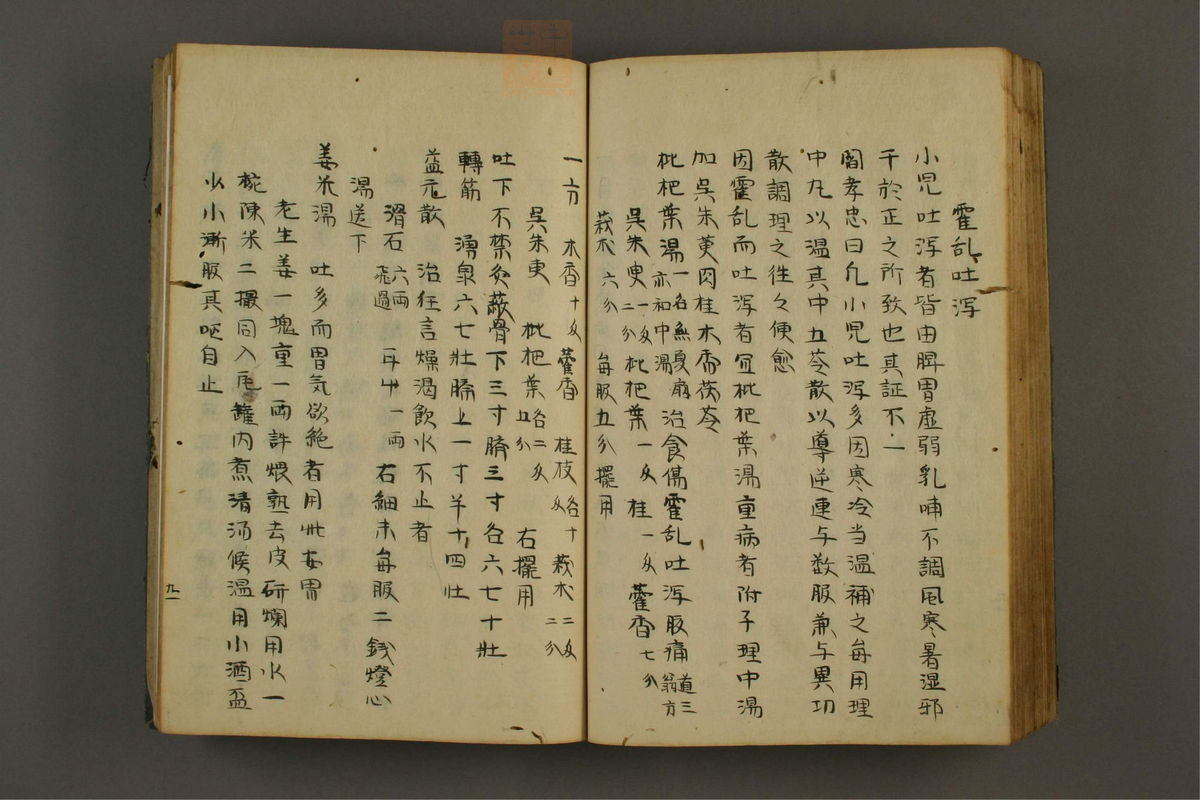 霍乱吐泻
小児吐泻者皆由脾胃虚弱乳哺不調風寒暑湿邪
干於正之所致也其証不一
閻孝忠曰凡小児吐泻多因寒冷当温補之毎用理
中丸以温其中五苓散以導逆連与数服兼与異功
散調理之徃々便愈
因霍乱而吐泻者宜枇杷葉湯重病者附子理中湯
加呉朱萸肉桂木香茯苓
枇杷葉湯 一名無夏扇 亦和中湯 治食傷霍乱吐泻腹痛 道三翁方
呉朱臾 一匁二分 枇杷葉一匁 桂一匁 藿香七分
莪朮六分 毎服五分擺用
一方 木香十匁 藿香 桂枝 各十匁 莪朮 二匁二分
呉朱臾 枇杷葉 各二匁五分 右擺用
吐下不禁灸蔽骨下三寸臍三寸各六七十壯
轉筋 湧泉六七壯臍上一寸羊十四壯
益元散 治狂言燥渇飲水不止者
滑石 六両飛過 日艸一両 右細末毎服二銭燈心
湯送下
姜米湯 吐多而胃気欲絶者用此安胃
老生姜一塊重一両許煨熟去皮研爛用水一
椀陳米二撮同入瓦罐内煮清汤候温用小酒盃
少小漸服其呕自止
九